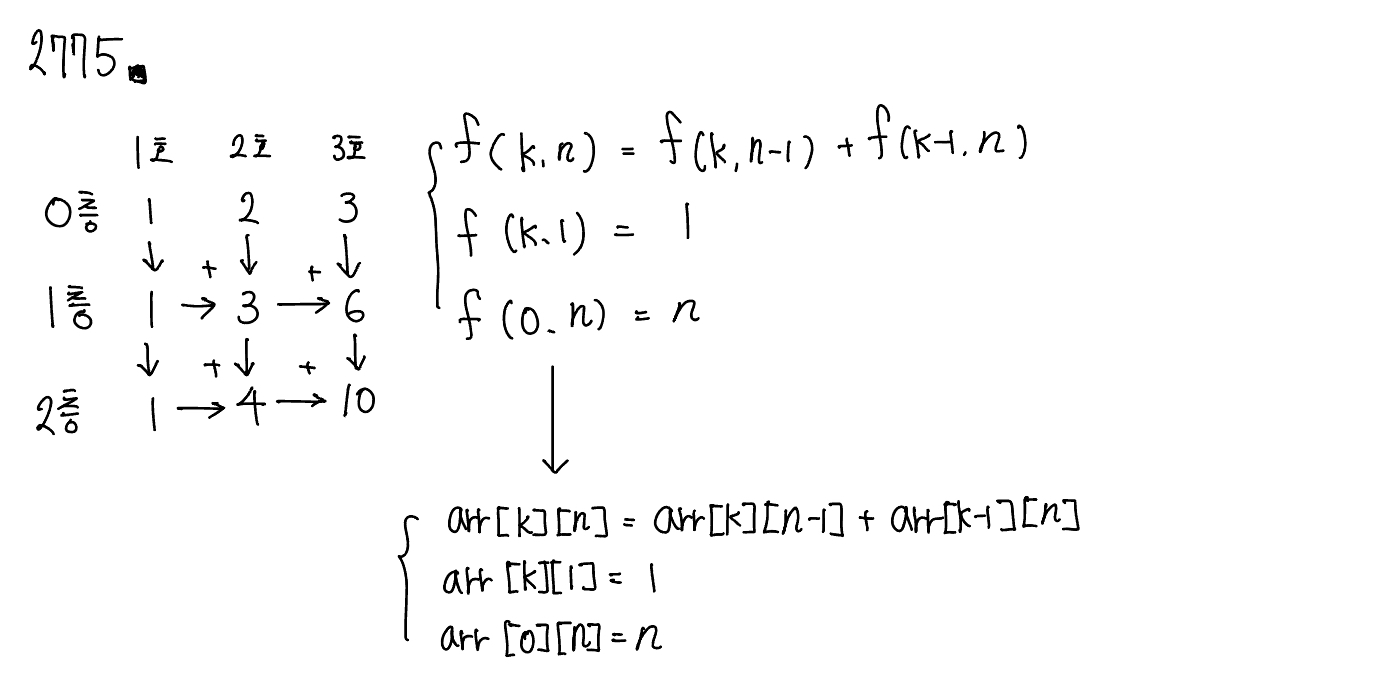 2775.
1호 2호 3호
0층 1 2 3
↓ + ↓ + ↓
1층 1 → 3 → 6
↓ + ↓ + ↓
2층 1 → 4 → 10
f(k, n) = f(k, n-1) + f(k-1, n)
f(k, 1) = 1
f(0, n) = n
↓
arr[k][n] = arr[k][n-1] + arr[k-1][n]
arr[k][1] = 1
arr[0][n] = n